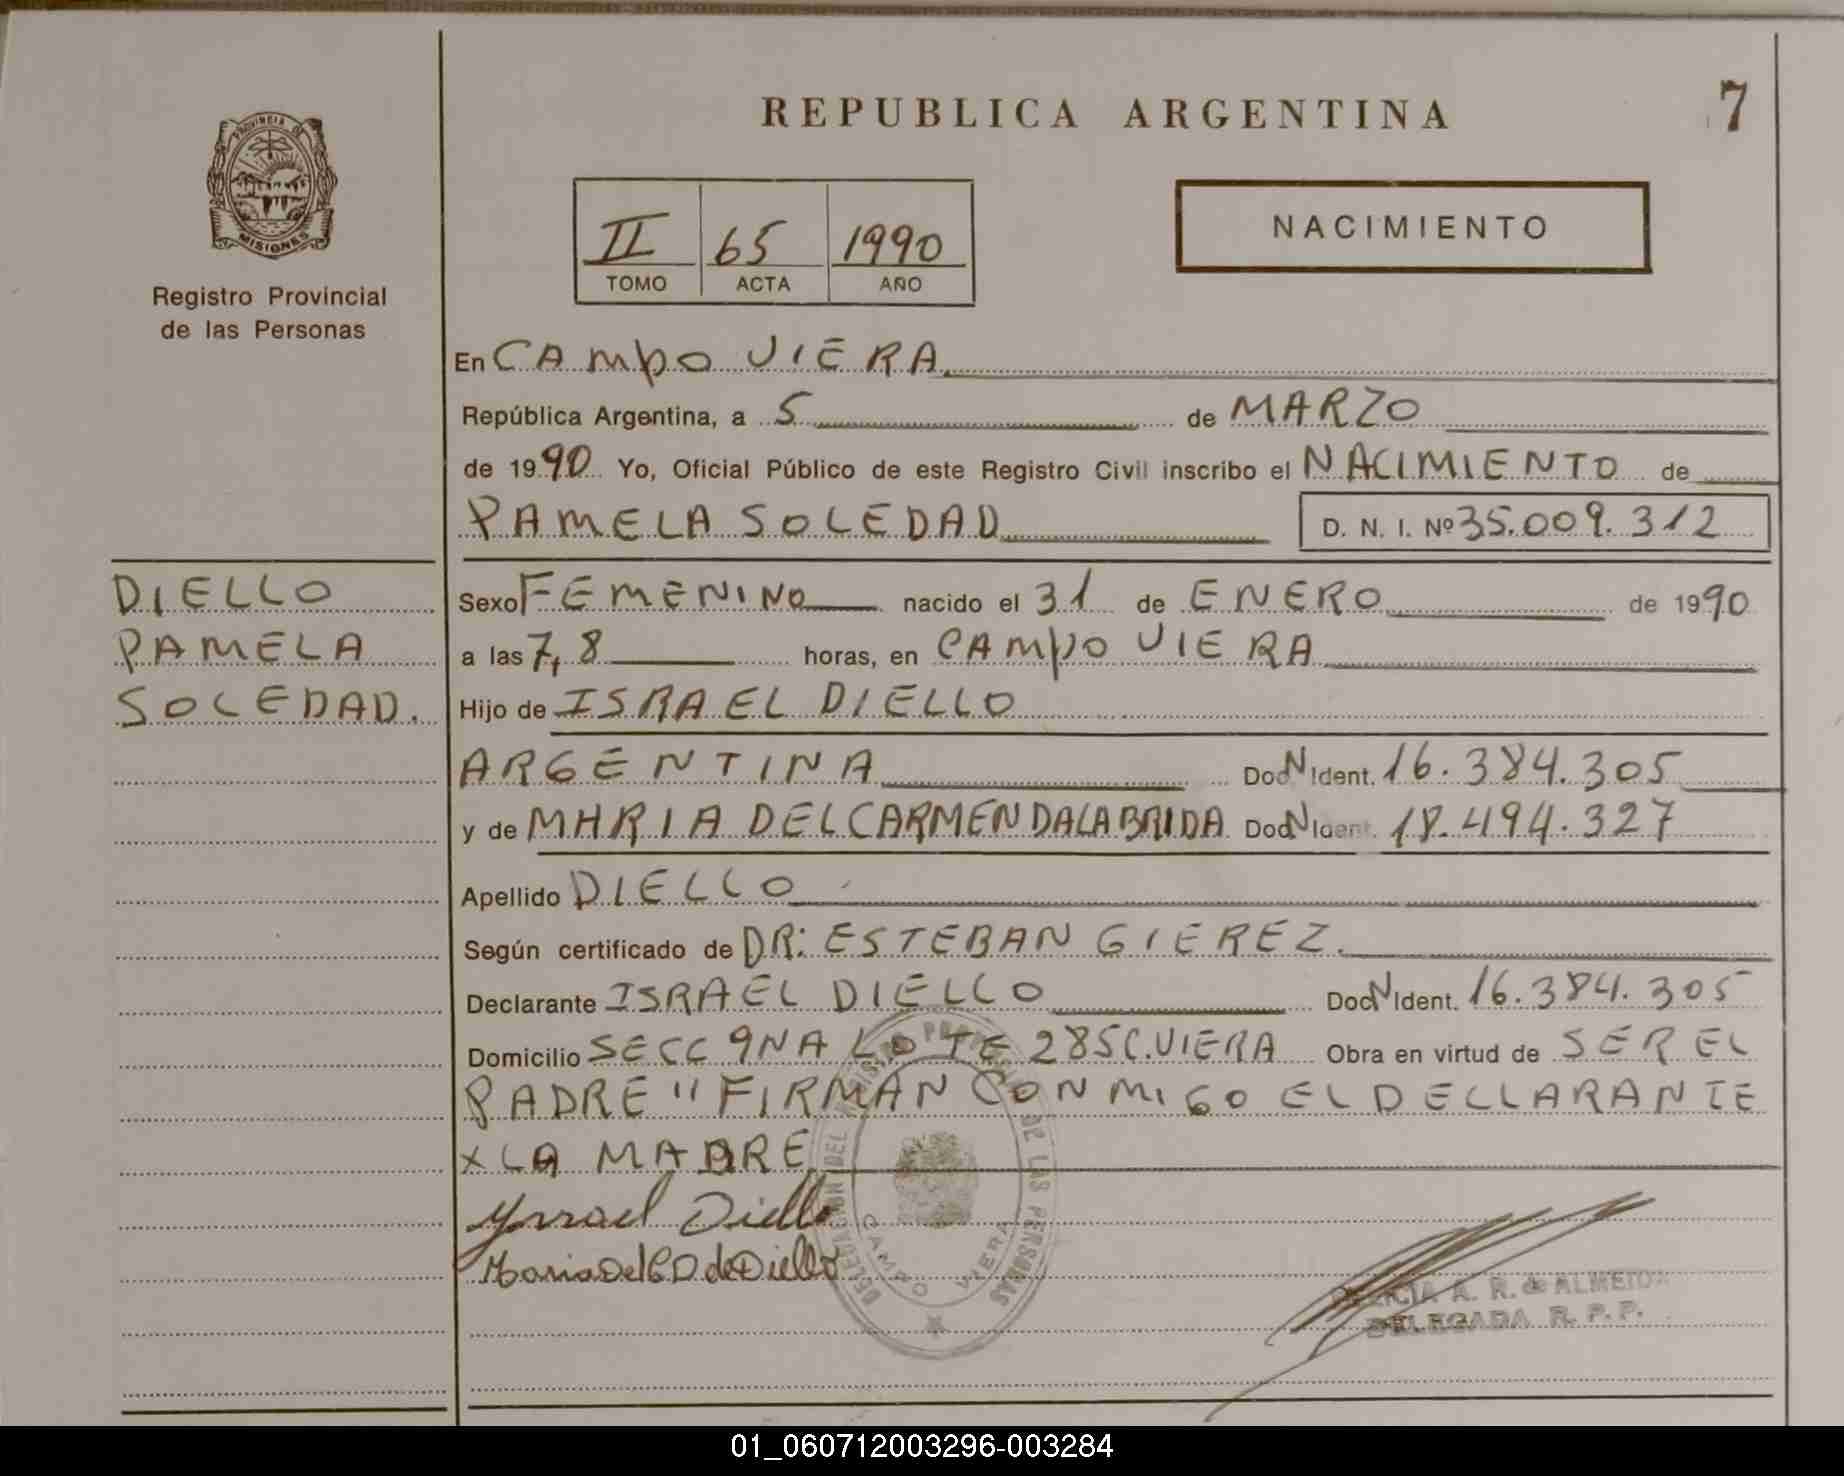 REPUBLICA ARGENTINA
7
PROVINCIA DE
MISIONES
Registro Provincial
de las Personas
II 65 1990
TOMO ACTA AÑO
NACIMIENTO
En CAMPO VIERA
República Argentina, a 5 de MARZO
de 1990 Yo, Oficial Público de este Registro Civil inscribo el NACIMIENTO de
PAMELA SOLEDAD D. N. I. Nº 35.009.312
DIELLO
PAMELA
SOLEDAD.
Sexo FEMENINO nacido el 31 de ENERO de 1990
a las 7,8 horas, en CAMPO VIERA
Hijo de ISRAEL DIELLO
ARGENTINA Doc N Ident. 16.384.305
y de MARIA DEL CARMEN DALABRIDA Doc N Ident. 18.494.327
Apellido DIELLO
Según certificado de DR: ESTEBAN GIEREZ.
Declarante ISRAEL DIELLO Doc N Ident. 16.384.305
Domicilio SECC 9NA LOTE 285 C.VIERA Obra en virtud de SER EL
PADRE " FIRMAN CONMIGO EL DECLARANTE
x LA MADRE
Ysrael Diello
Maria Del C D de Diello
DELEGACION DEL REGISTRO PROVINCIAL DE LAS PERSONAS
CAMPO VIERA
A. R. de ALMEIDA
DELEGADA R. P. P.
01_060712003296-003284